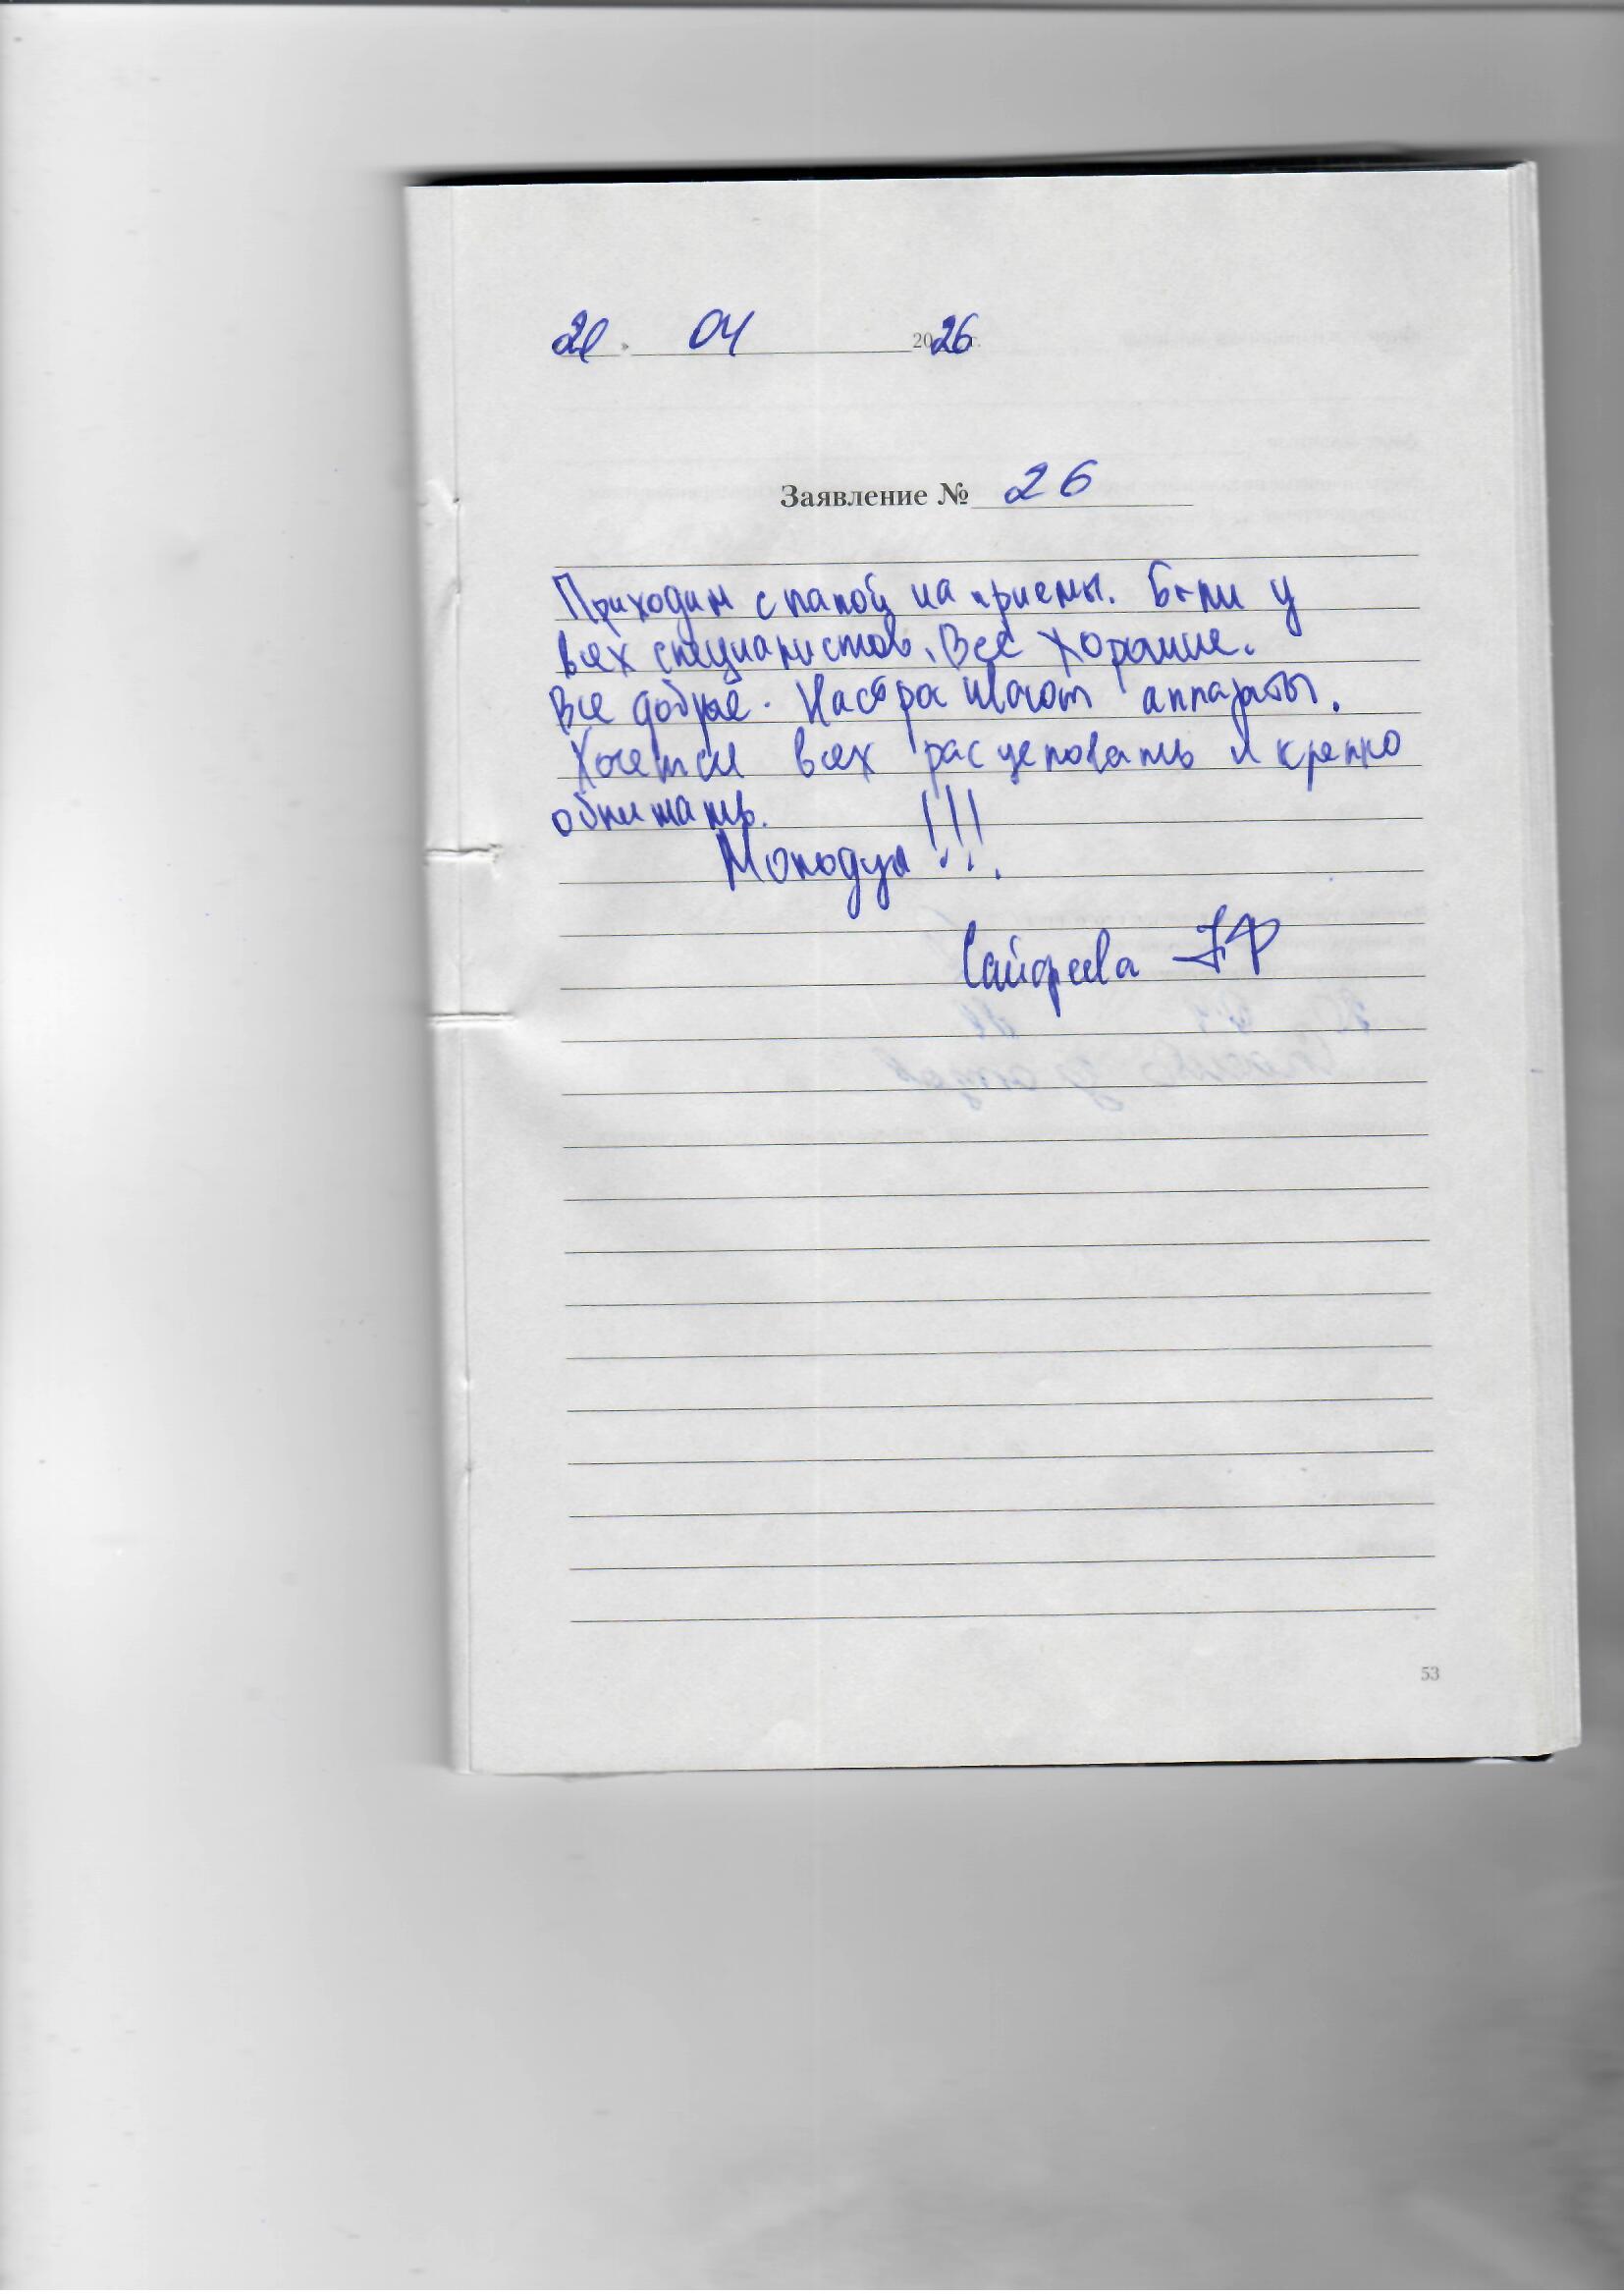 21 » 04 2026 г.
Заявление № 26
Приходим с папой на приемы. Были у
всех специалистов. Все хорошие.
Все добрые. Настраивают аппараты.
Хочется всех расцеловать и крепко
обнимать.
Молодцы!!!
53